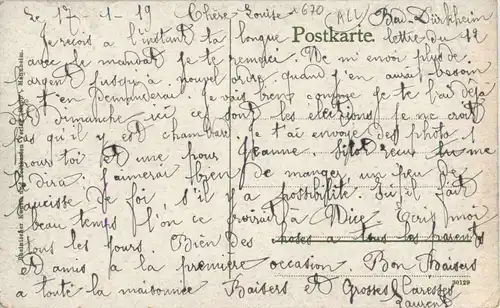 le 17-1-19 Chère Louise x 670 (ALL) Bad-Dürkheim
Postkarte.
Je reçois à l'instant ta longue lettre du 12
avec le mandat je te remerci. Ne m'envoi plus de
argent jusqu'à nouvel ordre quand j'en aurai besoin
je t'en demanderai Je vais bien comme je te l'ai déjà
dimanche ici ce sont les élections je ne croit
pas qu'il y est chambard je t'ai envoyé des photo 1
pour toi et une pour Jeanne, sitôt reçu tu me
dira j'aimerai bien de manger un peu de
saucisse de foi s'il y a possibilité Ici il fait
beau temps l'on ce croirait à Nice Ecris moi
tous les jours Bien des choses a tous les parents
et amis a la première occasion Bon Baisers
a toute la maisonnée Baisers et Grosses Caresses
Laurent
30129